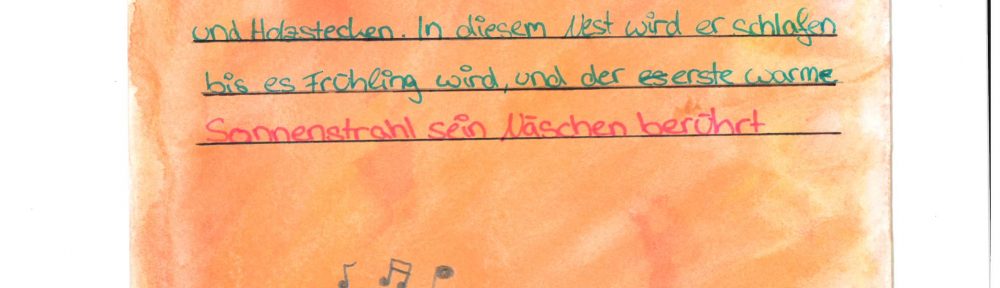 und Holzstecken. In diesem Nest wird er schlafen
bis es Frühling wird, und der es erste warme
Sonnenstrahl sein Näschen berührt